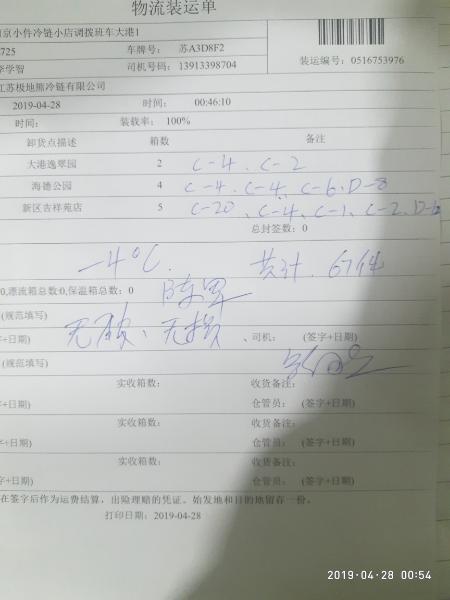 物流装运单
南京小件冷链小店调拨班车大港1
725 车牌号： 苏A3D8F2
李学智 司机号码：13913398704 装运编号：0516753976
江苏极地熊冷链有限公司
2019-04-28 时间： 00:46:10
时间： 装载率： 100%
卸货点描述 箱数 备注
大港逸翠园 2 C-4、C-2
海德公园 4 C-4、C-4、C-6、D-8
新区吉祥苑店 5 C-20、C-4、C-1、C-2、D-
总封签数：0
-4℃. 共计．67件
0,漂流箱总数:0,保温箱总数：0
(规范填写)
无破、无损
字+日期) 、司机： (签字+日期)
(规范填写)
实收箱数： 收货备注：
字+日期) 仓管员： (签字+日期)
实收箱数： 收货备注：
字+日期) 仓管员： (签字+日期)
实收箱数： 收货备注：
字+日期) 仓管员： (签字+日期)
在签字后作为运费结算，出险理赔的凭证。始发地和目的地留存一份。
打印日期：2019-04-28
2019-04-28 00:54